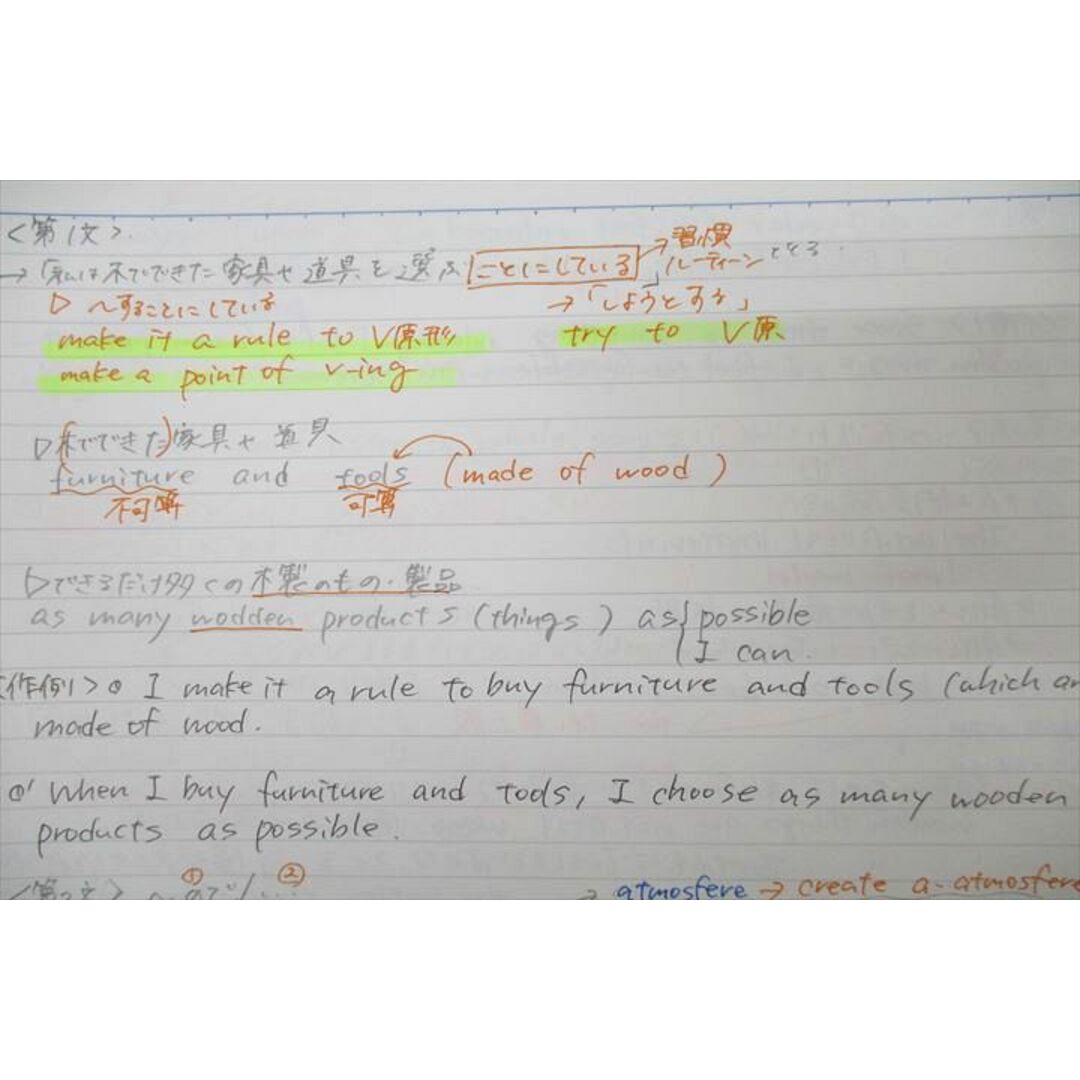 <第1文>.
→「私は木でできた家具や道具を選ぶことにしている」 → 習慣 ルーティーン ととる.
▷ 〜することにしている → 「しようとする」
make it a rule to V原形 try to V原
make a point of v-ing
▷(木でできた)家具や道具
furniture and tools (made of wood)
不可算 可算
▷できるだけ多くの木製のもの・製品
as many wodden products (things) as { possible
I can.
作例>○ I make it a rule to buy furniture and tools (which ar
made of wood.
○' When I buy furniture and tools, I choose as many wooden
products as possible.
① ②
<第2文> → atmosfere → create a atmosfere